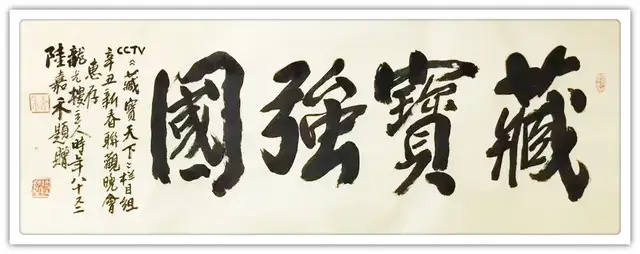 藏寶強國
CCTV《藏寶天下》栏目组
辛丑新春聯歡晚會
惠存
龍光樓主人時年八十又二
陸嘉禾題贈